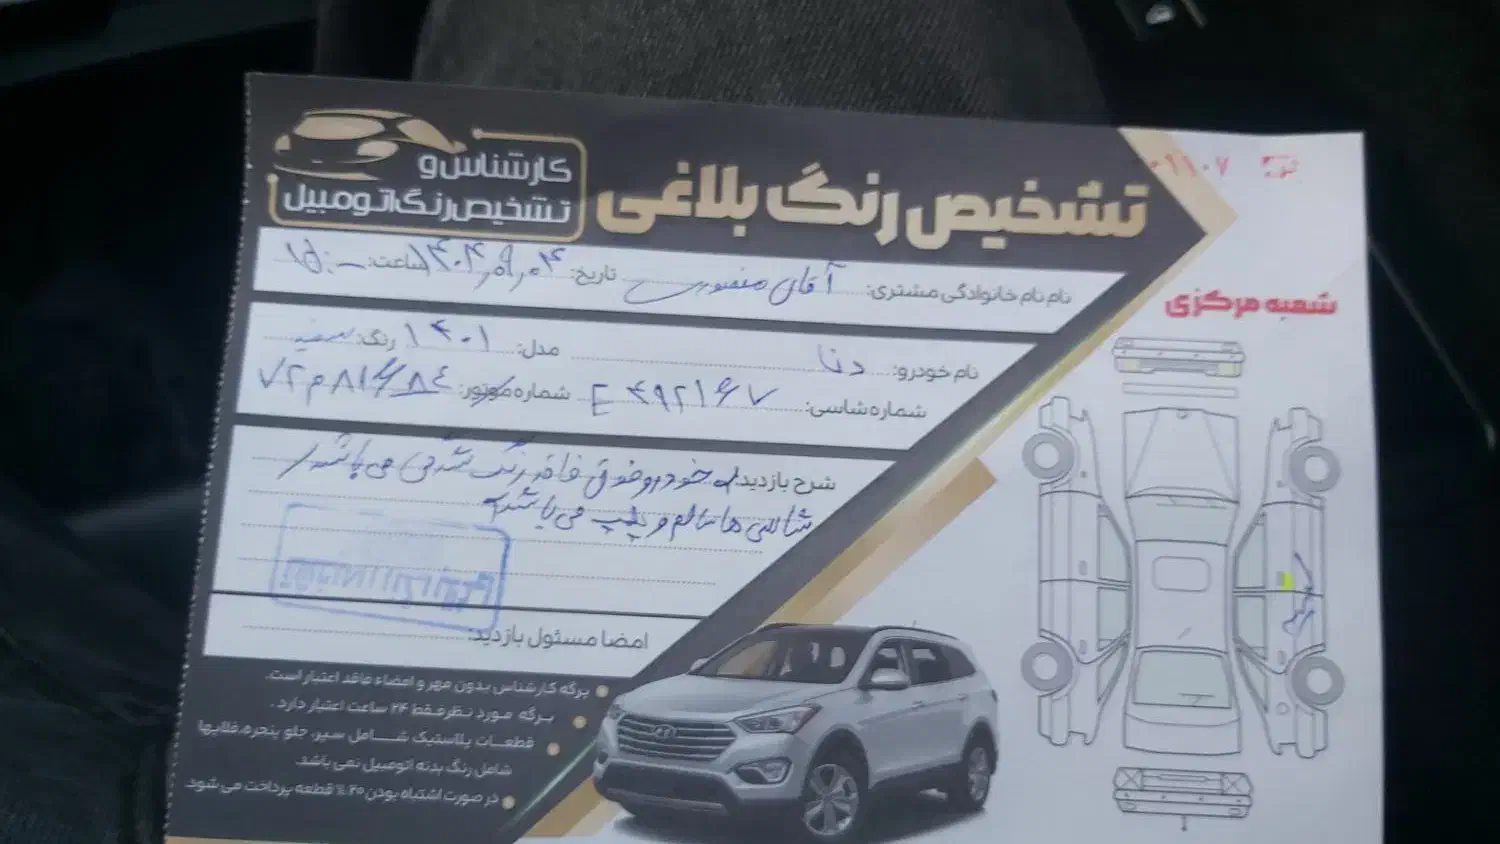 ۰۱۱۰۷
تشخیص رنگ بلاغی
کارشناس و
تشخیص رنگ اتومبیل
شعبه مرکزی
نام نام خانوادگی مشتری: آقای منصوری تاریخ: ۱۴۰۴,۰۹,۰۴ ساعت: ۱۵:۰۰
نام خودرو: دنا مدل: ۱۴۰۱ رنگ: سفید
شماره شاسی: E ۴۹۲۱۶۷ شماره موتور:
شرح بازدید: خودرو فوق فاقد رنگ شدگی می باشد
شاسی ها سالم و پلمپ می باشد
امضا مسئول بازدید:
برگه کارشناس بدون مهر و امضاء فاقد اعتبار است.
برگه مورد نظر فقط ۲۴ ساعت اعتبار دارد.
قطعات پلاستیک شامل سپر، جلو پنجره، قلابها
شامل رنگ بدنه اتومبیل نمی باشد.
در صورت اشتباه بودن ۲۰٪ قطعه پرداخت می شود.